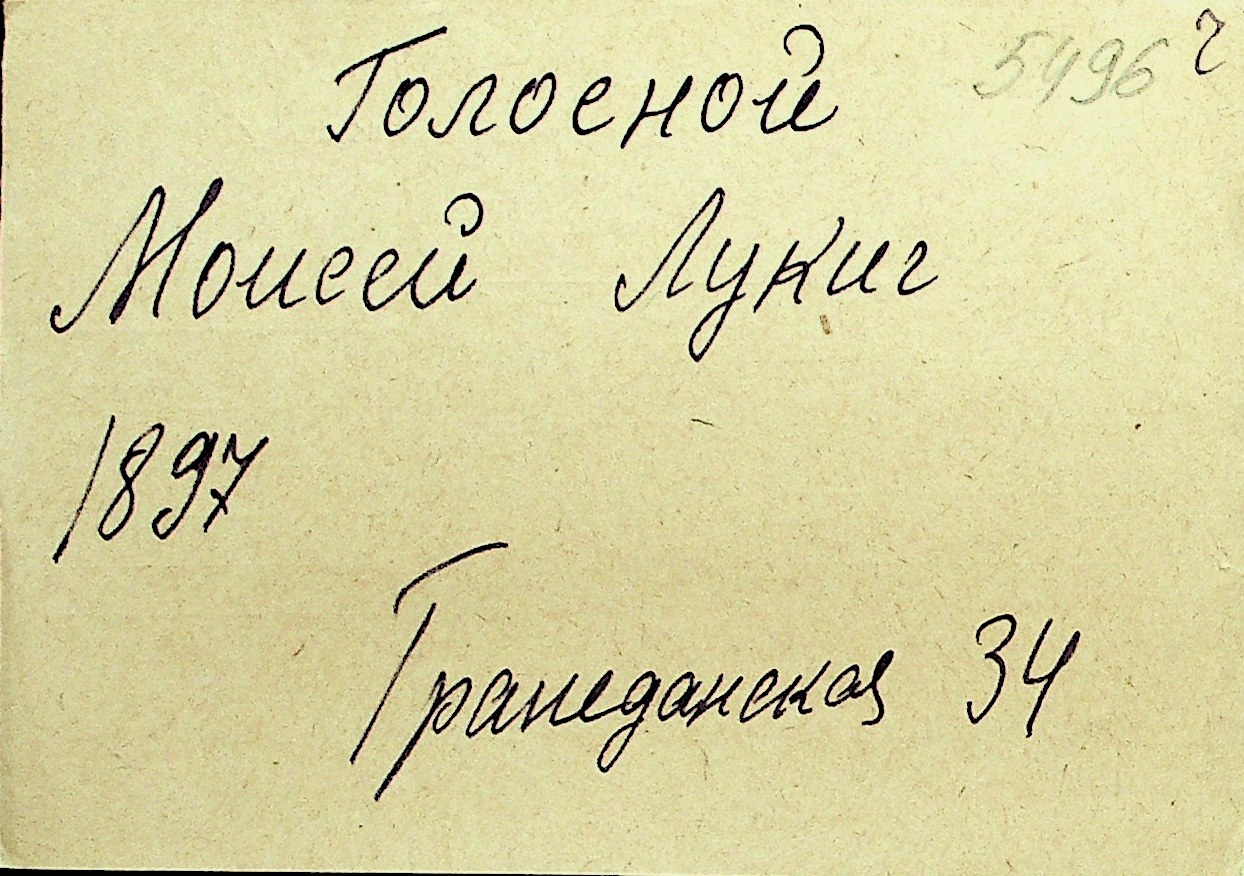 5496 г
Голосной
Моисей Лукич
1897
Гражданская 34